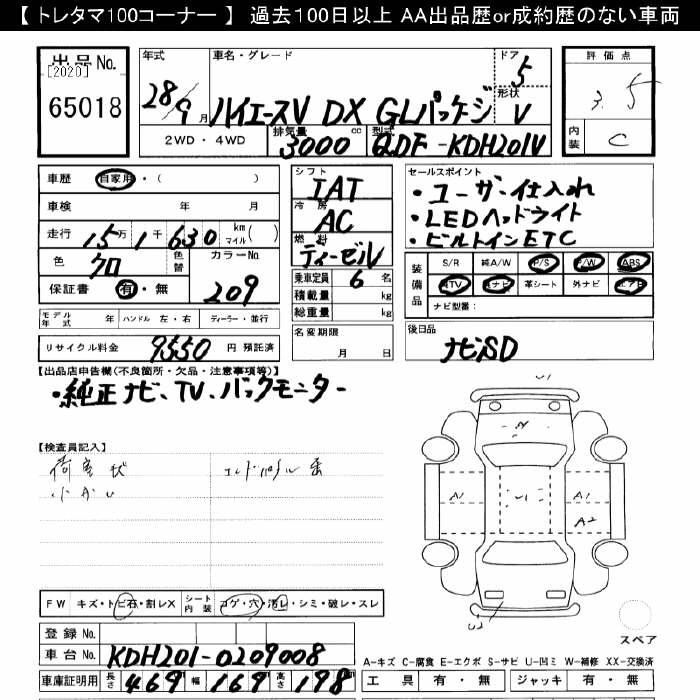 【 トレタマ100コーナー 】 過去100日以上 AA出品歴or成約歴のない車両
出品No.
[2020]
65018
年式
28/9月
車名・グレード
ハイエースV DX GLパッケージ
ドア
5
形状
V
2WD・4WD
排気量
3000cc
型式
QDF-KDH201V
評価点
3.5
内装
C
車歴
自家用・( )
車検 年 月
走行 15万1千630 km マイル( )
色
クロ
色替
カラーNo.
209
保証書 有・無
モデル年式 年 ハンドル 左・右 ディーラー・並行
リサイクル料金 9550 円 預託済
シフト
IAT
冷房
AC
燃料
ディーゼル
乗車定員 6 名
積載量 kg
総重量 kg
名変期限
月 日
セールスポイント
・ユーザー仕入れ
・LEDヘッドライト
・ビルトインETC
装備品
S/R 純A/W P/S P/W ABS
純TV 純ナビ 革シート 外ナビ エアB
ナビ型番:
後日品
ナビSD
【出品店申告欄(不良箇所・欠品・注意事項等)】
・純正ナビ、TV、バックモニター
【検査員記入】
荷室状
小かい
FW キズ・トビ石・割レX シート内装 コゲ・穴・汚レ・シミ・破レ・スレ
登録No.
車台No. KDH201-0209008
車庫証明用 長さ 469 幅 169 高さ 198
U1
A1
U1
A1
A2
U2
スペア
A-キズ C-腐食 E-エクボ S-サビ U-凹ミ W-補修 XX-交換済
工具 有・無 ジャッキ 有・無